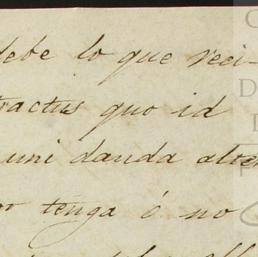 debe lo que reci-
tractus quo id
uni danda alter
tenga ó no